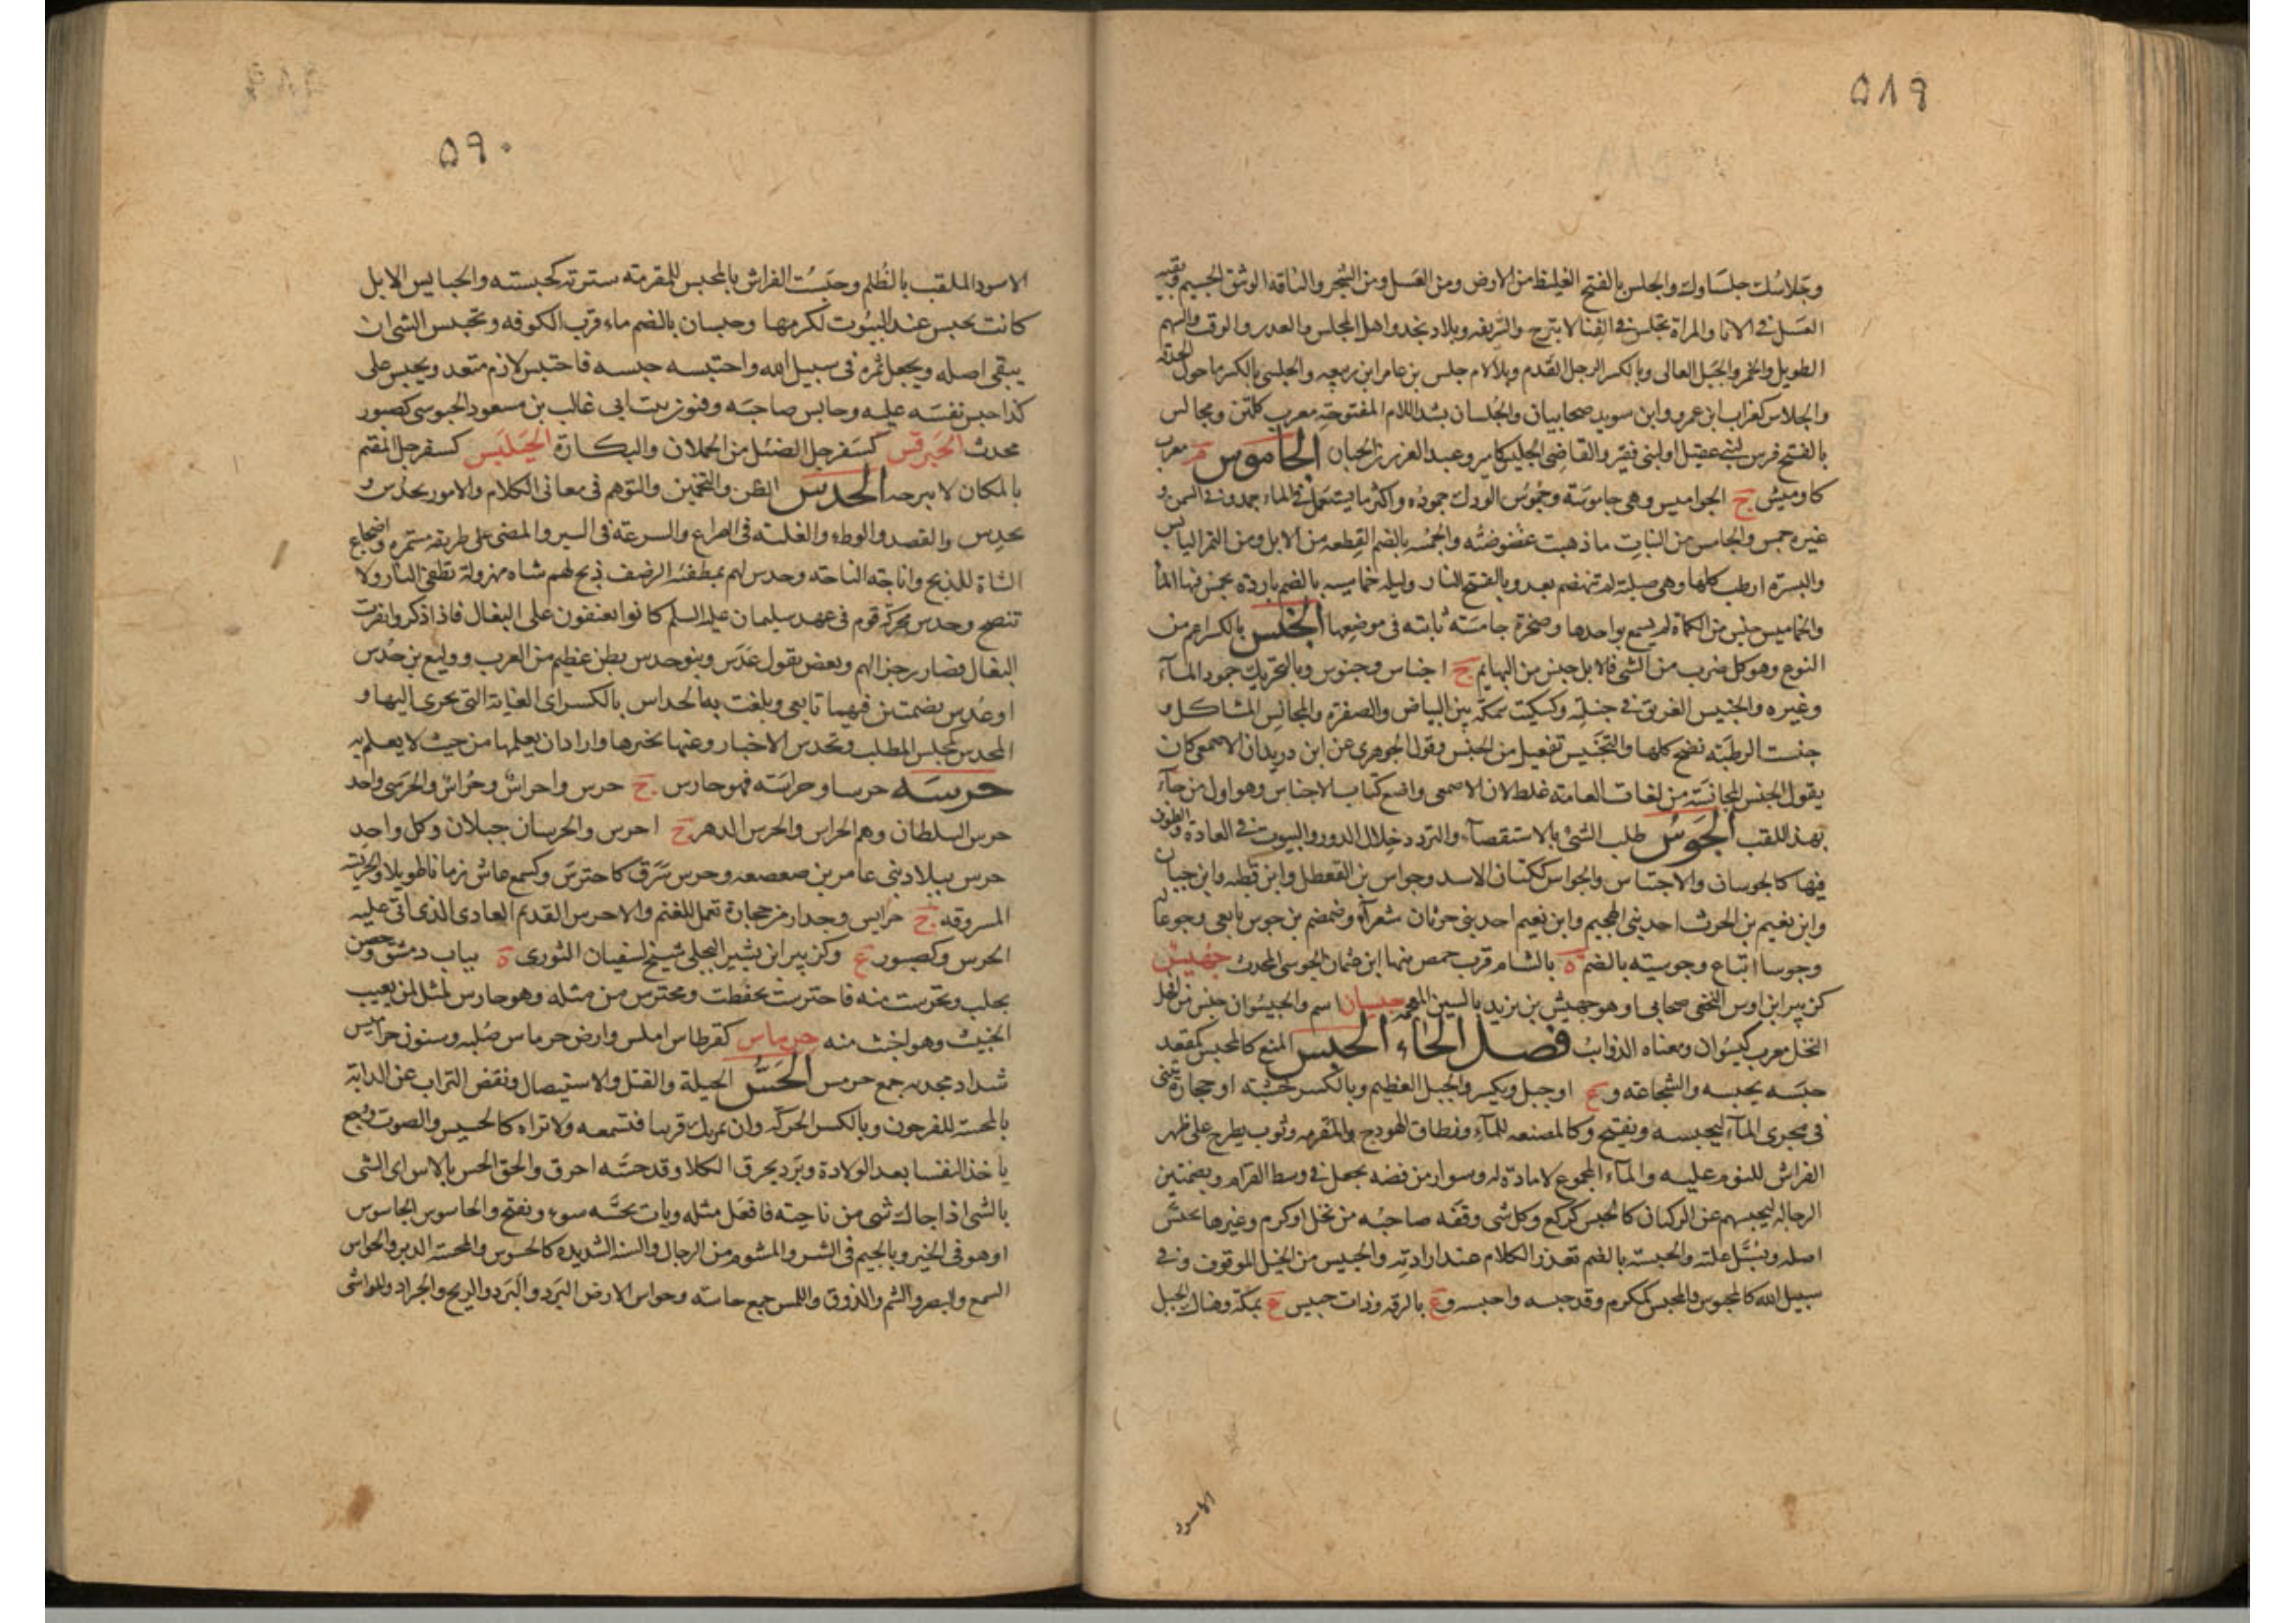 ٥٨٩
وجلاسك جلساوك والجلس بالفتح الغليظ من الارض ومن العسل ومن الشجر والناقه الوثق الجسيم وبقيه
العسل فى الانا والمراة تجلس فى الفنا لا تبرح والشريفه وبلاد نجد واهل المجلس والغدير والوقت والسهم
الطويل والخمر والجبل العالى وبالكسر الرجل الفدم وبلالام جلس بن عامر ابن ربيعه والجلسى بالكسر ما حول الحدقه
والجلاس كغراب ابن عمرو وابن سويد صحابيان والجلسان بشد اللام المفتوحة معرب كلشن ومجالس
بالفتح فرس لبنى عقيل او لبنى فقير والقاضى الجليس كامير وعبد العزيز الحباب الجاموس م معرب
كاوميش ج الجواميس وهى جاموسة وجموس الودك جموده واكثر ما يستعمل فى الماء جمد وفى السمن و
غيره جمس والجامس من النبات ما ذهبت غضوضته والجمسه بالضم القطعه من الابل ومن التمر اليابس
والبسرة ارطب كلها وهى صلبة لم تنهضم بعد وبالفتح النار وليله جماسيه بالضم باردة يجمس فيها الما
والجماميس جنس من الكماة لم يسمع بواحدها وصخرة جامسة ثابته فى موضعها الجنس بالكسر اعم من
النوع وهو كل ضرب من الشى فالابل جنس من البهايم ج اجناس وجنوس وبالتحريك جمود المآء
وغيره والجنيس العريق فى جنسه وكسكيت سمكة بين البياض والصفرة والمجانس المشاكل و
جنست الرطبه نضج كلها والتجنيس تفعيل من الجنس وقول الجوهرى عن ابن دريد ان الاصمعى كان
يقول الجنس المجانسة من لغات العامة غلط لان الاصمعى واضع كتاب الاجناس وهو اول من جآء
بهذ اللقب الجوس طلب الشئ بالاستقصآء والتردد خلال الدور والبيوت فى العادة والطوف
فيها كالجوسان والاجتياس والجواس ككتان الاسد وجواس بن القعطل وابن قطبه وابن حيان
وابن نعيم بن الحرث احد بنى الهجيم وابن نعيم احد بنى حرثان شعرآء وضمضم بن جوس تابعى وجوعا له
وجوسا اتباع وجوسيه بالضم ة بالشام قرب حمص منها ابن عثمان الجوسى المحدث جهيش
كزبير ابن اوس النخعى صحابى او هو جهيش بن يزيد بالسين المعجمه جيسان اسم والجيسوان جنس من افخر
النخل معرب كيسوان ومعناه الذوايب فصل الحاء الحبس المنع كالمحبس كمقعد
حبسه يحبسه والشجاعة و ع او جبل ويكسر والجبل العظيم وبالكسر خشبة او حجارة تبنى
فى مجرى المآء ليحبسه ويفتح وكالمصنعه للمآء ونطاق الهودج والمقرمه وثوب يطرح على ظهر
الفراش للنوم عليه والمآء المجموع لا مادة له وسوار من فضه يجعل فى وسط القرام وبضمتين
الرجاله لحبسهم عن الركبان كالحبس كركع وكل شى وقفه صاحبه من نخل او كرم وغيرها يحبس
اصله ويسبل غلته والحبسة بالضم تعذر الكلام عند ارادته والحبيس من الخيل الموقوف فى
سبيل الله كالمحبوس والمحبس كمكرم وقد حبسه واحبسه و ع بالرقه وذات حبيس ع بمكة وهناك الجبل
الاسود
٥٩٠
الاسود الملقب بالظلم وحبست الفراش بالمحبس للمقرمة سترته كحبسته والحبايس الابل
كانت تحبس عند البيوت لكرمها وحبسان بالضم ماء قرب الكوفه وتحبيس الشى ان
يبقى اصله ويجعل ثمره فى سبيل الله واحتبسه حبسه فاحتبس لازم متعد وتحبس على
كذا حبس نفسه عليه وحابس صاحبه وفنوز بنت ابى غالب بن مسعود الحبوسى كصبور
محدث الحبرقس كسفرجل الضئيل من الحملان والبكارة الحبلبس كسفرجل المقيم
بالمكان لا يبرحه الحدس الظن والتخمين والتوهم فى معانى الكلام والامور يحدس و
يحدس والقصد والوطء والغلبة فى الصراع والسرعة فى السير والمضى على طريقه مستمره واضجاع
الشاة للذبح واناخة الناقه وحدس لهم بمطفئة الرضف ذبح لهم شاه مهزولة تطفئ النار ولا
تنضج وحدس محركة قوم فى عهد سليمان عليه السلم كانوا يعنفون على البغال فاذا ذكروا نفرت
البغال فصار زجرا لهم وبعض يقول عدس وبنو حدس بطن عظيم من العرب ووكيع بن حدس
او عدس بضمتين فيهما تابعى وبلغت به الحداس بالكسر اى الغاية التى يجرى اليها و
المحدس كمجلس المطلب وتحدس الاخبار وعنها تخبرها واراد ان يعلمها من حيث لا يعلم به
حرسه حرسا وحراسة فهو حارس ج حرس واحراس وحراس والحرسى واحد
حرس السلطان وهم الحراس والحرس الدهر ج احرس والحرسان جبلان وكل واحد
حرس ببلاد بنى عامر بن صعصعه وحرس سرق كاحترس وكسمع عاش زمانا طويلا والحريسة
المسروقه ج حرايس وجدار من حجارة تعمل للغنم والاحرس القديم العادى الذى اتى عليه
الحرس وكصبور ع وكزبير ابن بشير البجلى شيخ لسفيان الثورى ة بباب دمشق وحصن
بحلب وتحرست منه فاحترست تحفظت ومحترس من مثله وهو حارس لمثل لمن يعيب
الخبيث وهو اخبث منه حرماس كقرطاس املس وارض حرماس صلبه وسنون حراميس
شداد مجدبه جمع حرمس الحس الحيلة والقتل والاستيصال ونفض التراب عن الدابه
بالمحسة للفرجون وبالكسر الحركه وان يمر بك قريبا فتسمعه ولا تراه كالحسيس والصوت ووجع
ياخذ النفسا بعد الولادة وبرد يحرق الكلا وقد حسه احرق والحق الحس بالاس اى الشى
بالشى اذا جاك شى من ناحيته فافعل مثله وبات بحسه سوء ويفتح والحاسوس الجاسوس
او هو فى الخير وبالجيم فى الشر والمشوم من الرجال والسنة الشديده كالحسوس والمحسة الدبر والحواس
السمع والبصر والشم والذوق واللمس جمع حاسه وحواس الارض البرد والبرد والريح والجراد والمواشى